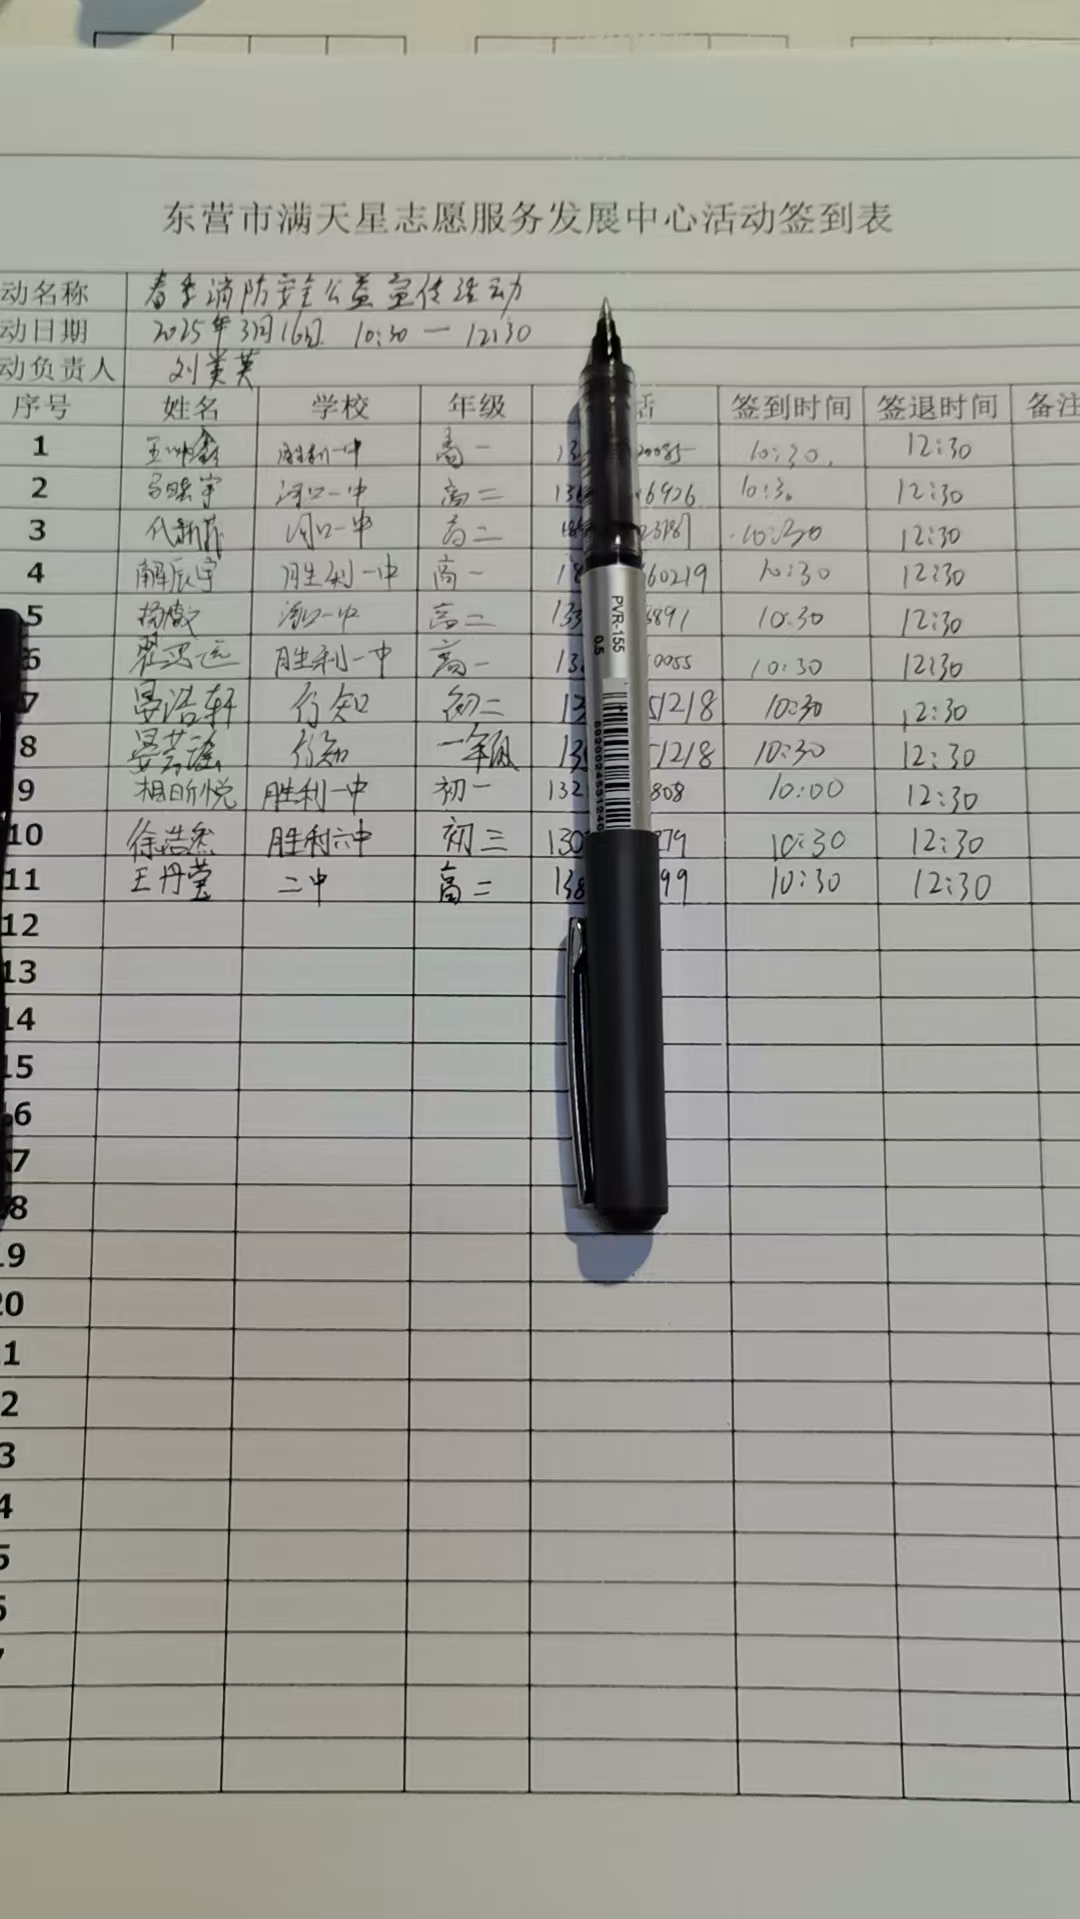 东营市满天星志愿服务发展中心活动签到表
动名称 春季消防安全公益宣传活动
动日期 2025年3月16日 10:30 — 12:30
动负责人 刘美英
序号 姓名 学校 年级 话 签到时间 签退时间 备注
1 胜利一中 高一 13 20085 10:30. 12:30
2 河口一中 高二 13 6926 10:30 12:30
3 河口一中 高二 12:30
4 解辰宇 胜利一中 高一 18 60219 10:30 12:30
5 河口一中 高二 133 6891 10:30 12:30
6 胜利一中 高一 13 0055 10:30 12:30
7 晏浩轩 行知 初二 13 51218 10:30 12:30
8 行知 一年级 13 51218 10:30 12:30
9 相昕悦 胜利一中 初一 132 808 10:00 12:30
10 徐浩然 胜利六中 初三 130 279 10:30 12:30
11 王丹莹 二中 高二 138 99 10:30 12:30
12
13
14
15
6
7
8
9
20
1
2
3
4
5
PVR-155
0.5